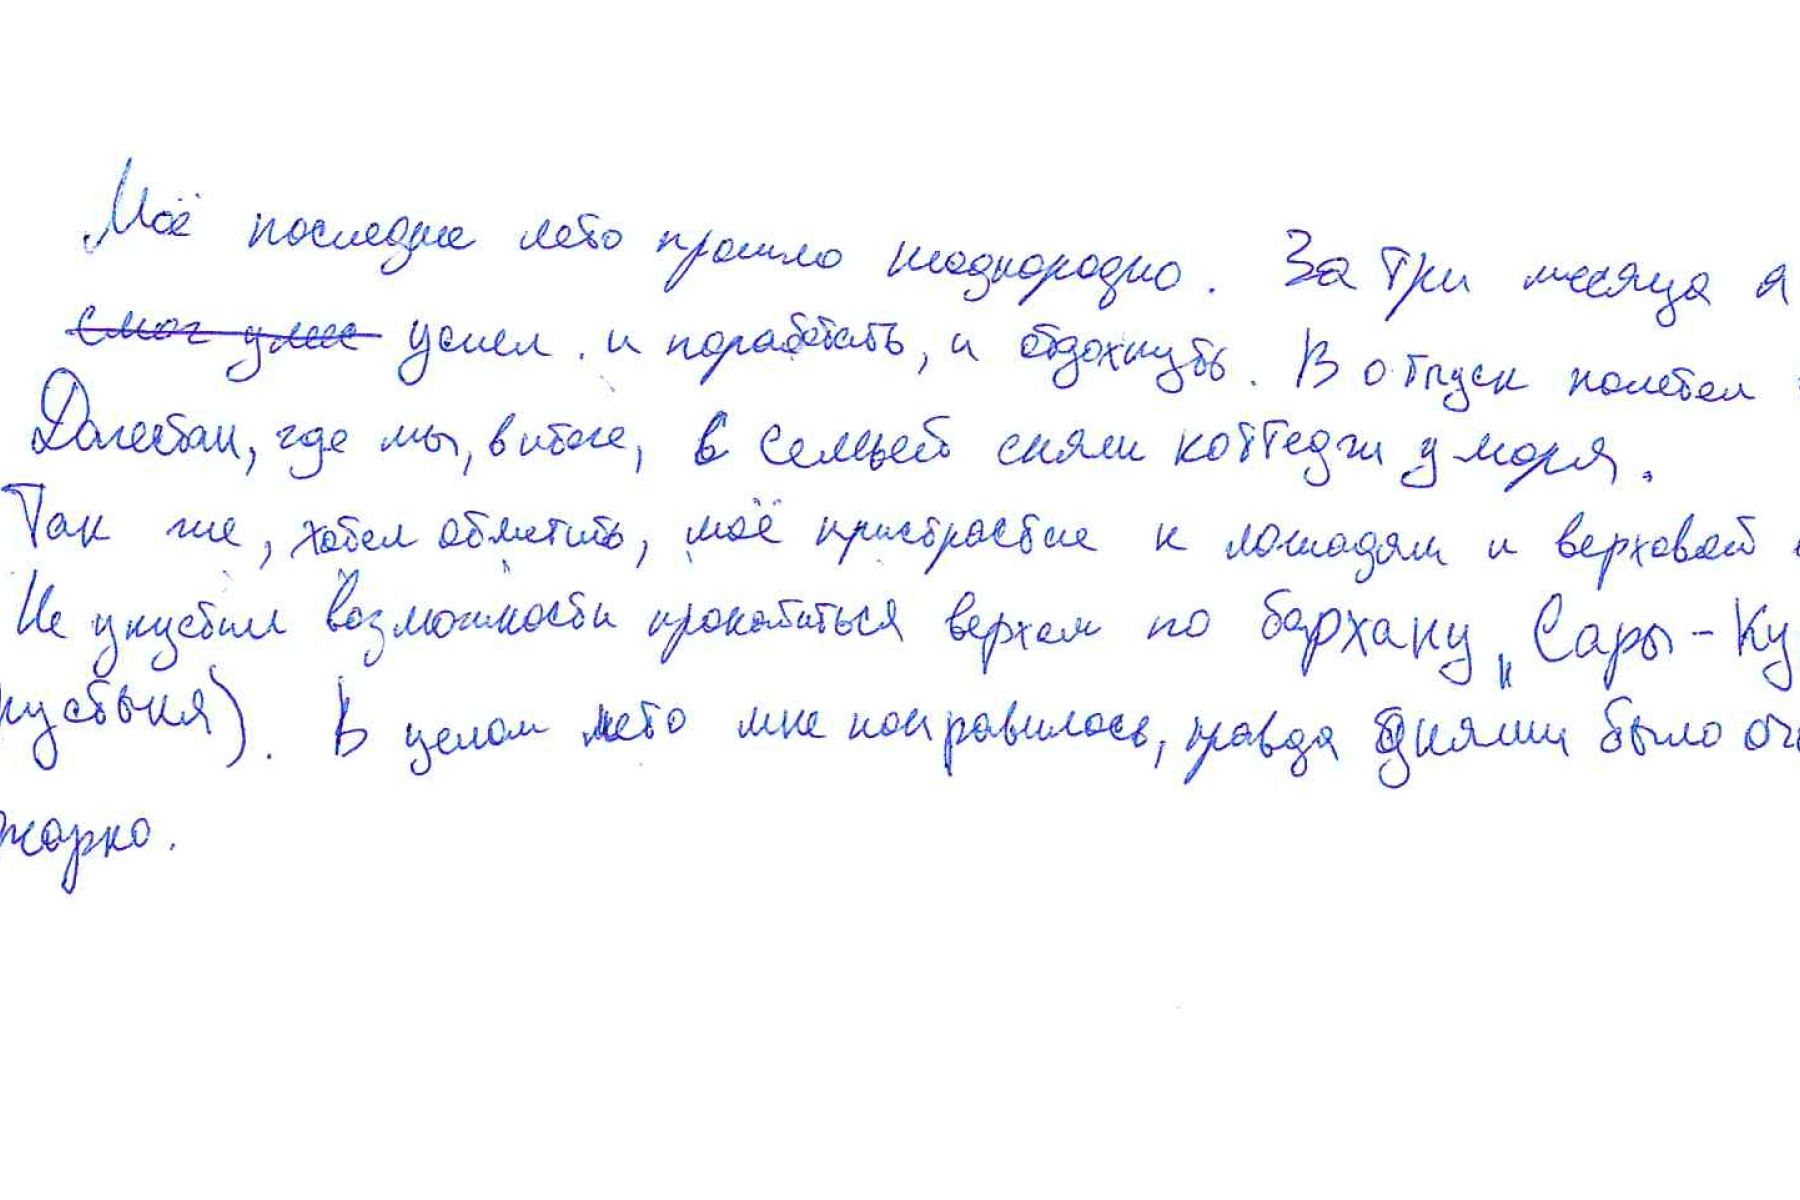 Моё последнее лето прошло неоднородно. За три месяца я
смог уже успел и поработать, и отдохнуть. В отпуск полетел
Дагестан, где мы, в итоге, с семьей сняли коттедж у моря.
Так же, хотел отметить, моё пристрастие к лошадям и верховой
Не упустил возможности прокатиться верхом по бархану "Сары-Ку
пустыня). В целом лето мне понравилось, правда днями было оч
жарко.